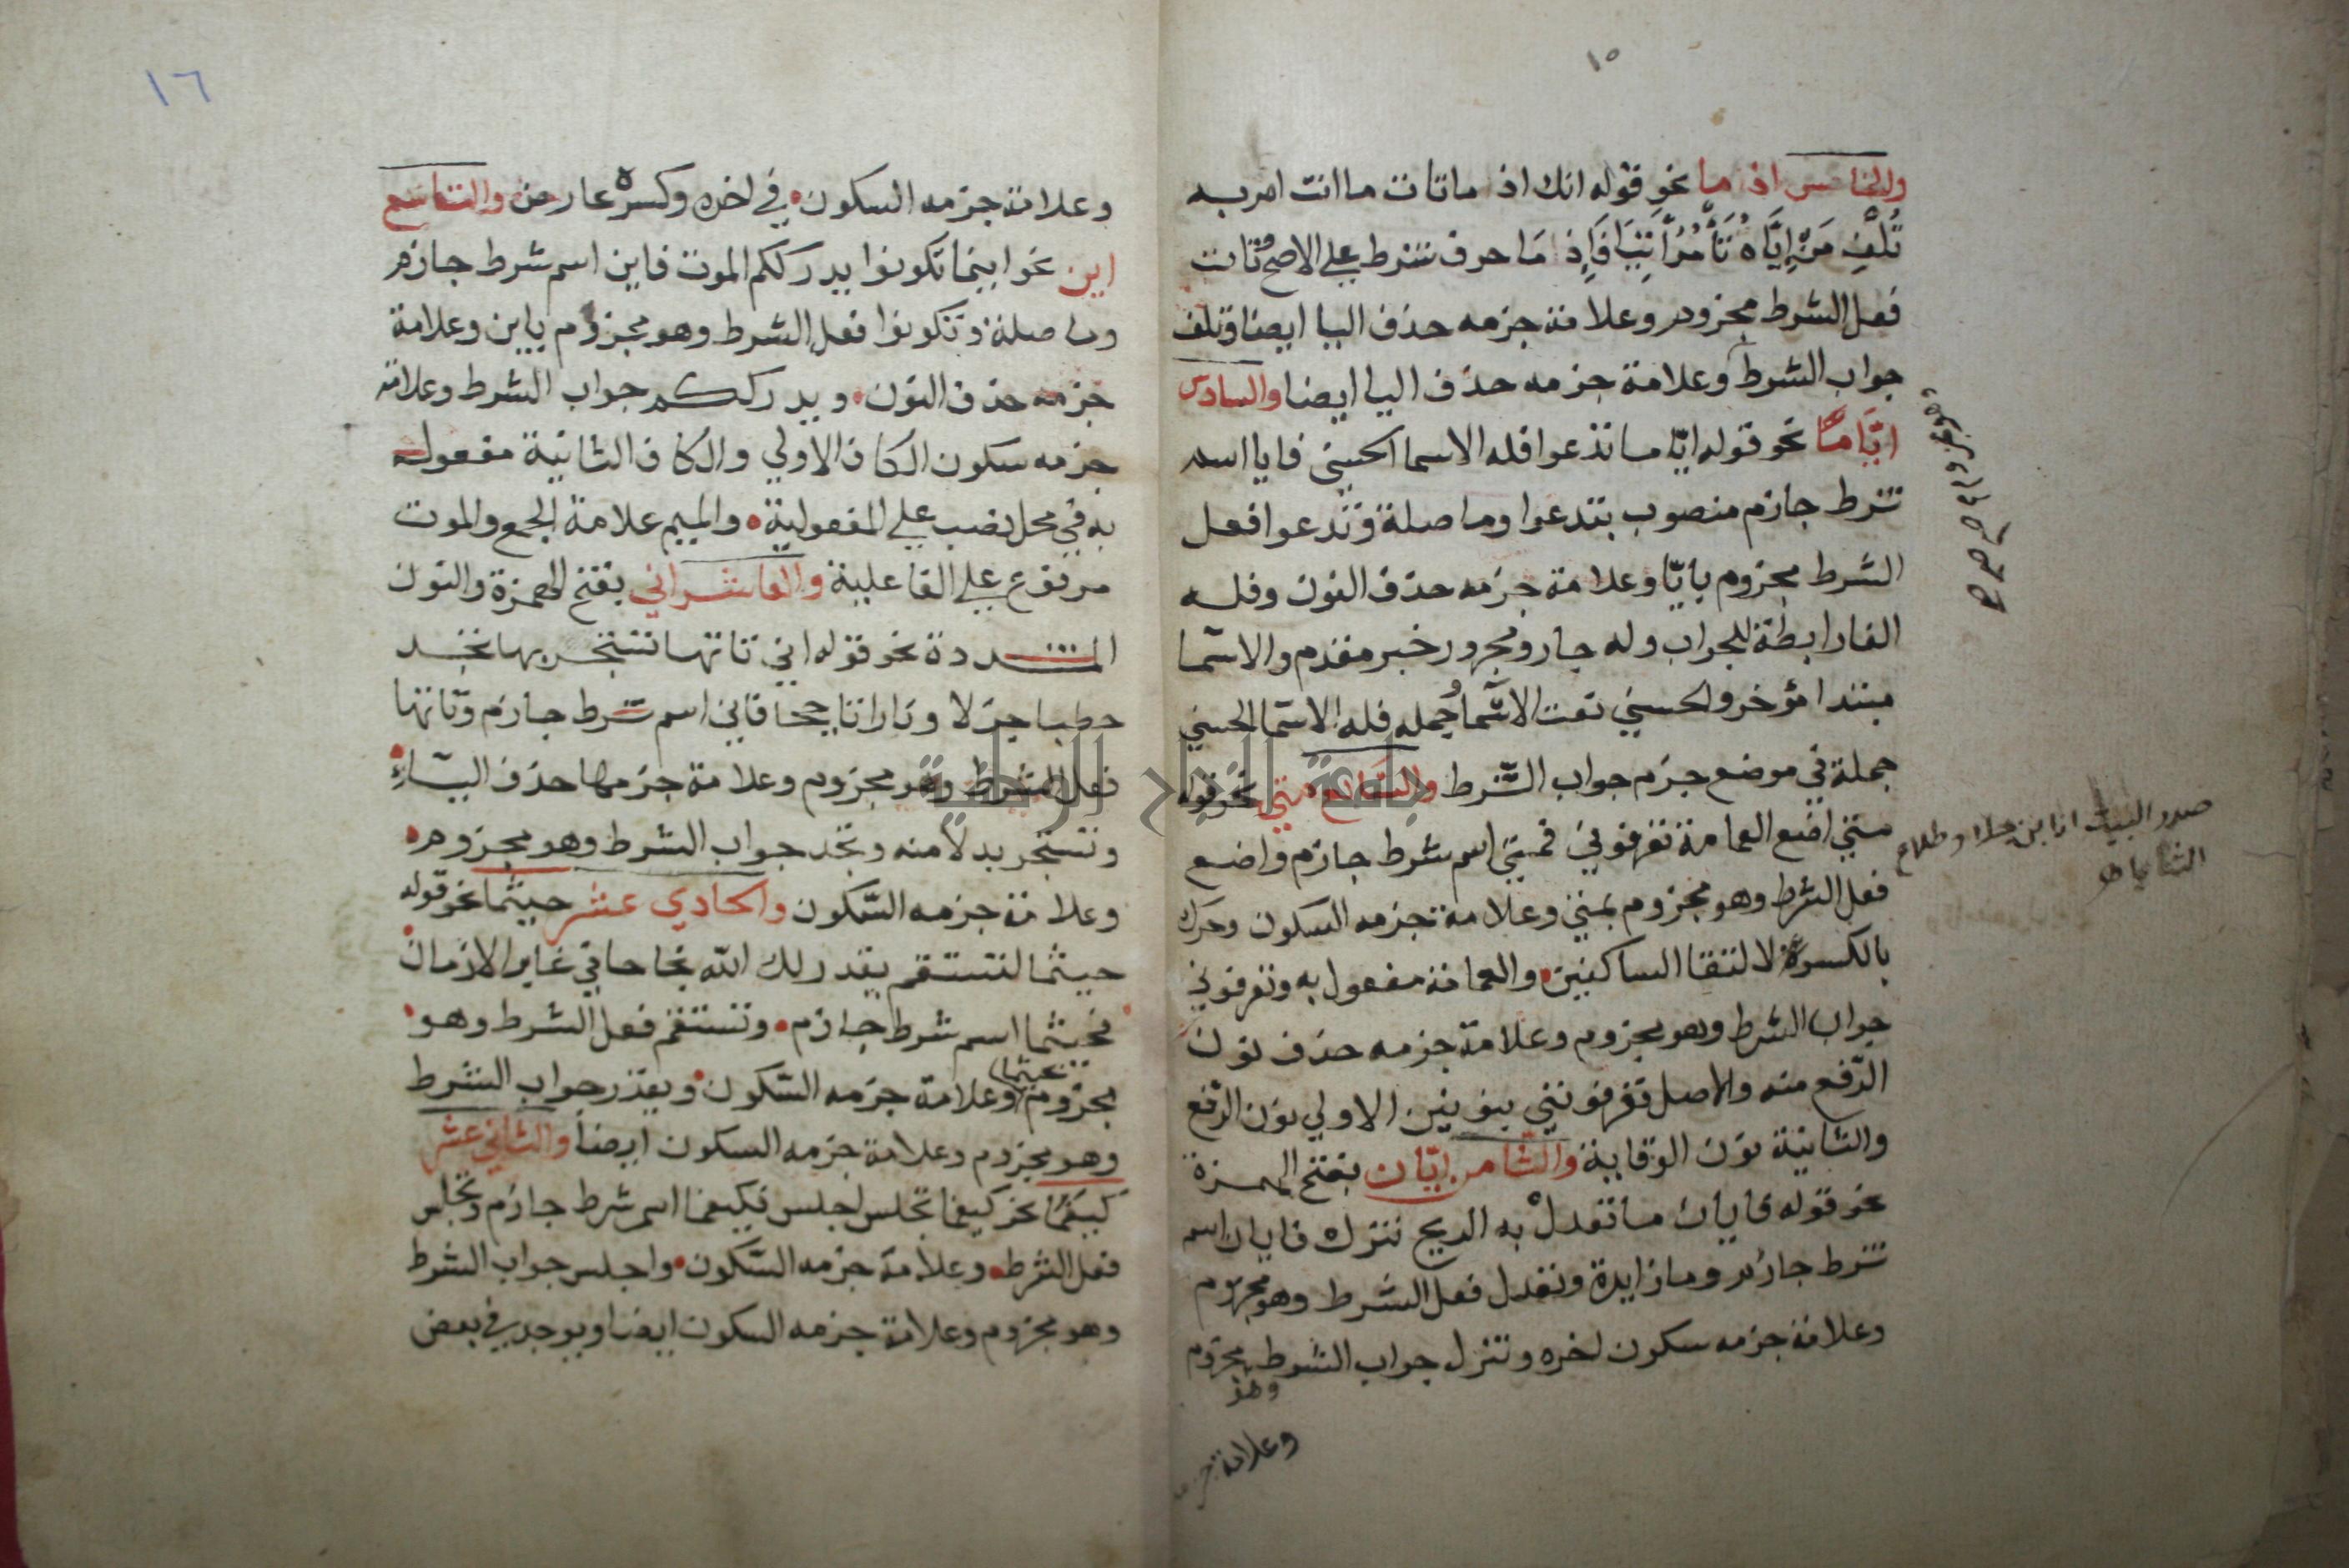 ١٥
والخامس اذ ما نحو قوله انك اذ ما تات ما انت امر به
تُلْفِ مَن إِيَّاهُ تَأْمُرُ آتِيَا فَإِذ مَا حرف شرط علي الاصح وتات
فعل الشرط مجزوم وعلامة جزمه حذف اليا ايضا وتلف
جواب الشرط وعلامة جزمه حذف اليا ايضا والسادس
ايّا مّا نحو قوله ايّا ما تدعوا فله الاسما الحسني فايا اسم
شرط جازم منصوب بتدعوا وما صلة وتدعوا فعل
الشرط مجزوم بايّا وعلامة جزمه حذف النون وفله
الفا رابطة للجواب وله جار ومجرور خبر مقدم والاسما
مبتدا مؤخر والحسني نعت الاسما جمله فله الاسما الحسني
جملة في موضع جزم جواب الشّرط والسّابع متي نحو قوله
متي اضع العمامة تعرفوني فمتي اسم شرط جازم واضع
فعل الشرط وهو مجزوم بمتي وعلامة جزمه السكون وحرك
بالكسرة لالتقا الساكنين والعمامة مفعول به وتعرفوني
جواب الشرط وهو مجزوم وعلامة جزمه حذف نون
الرّفع منه والاصل تعرفونني بنونين الاولي نون الرّفع
والثانية نون الوقاية والثّامن ايّان بفتح الهمزة
نحو قوله فايان ما تعدلْ به الريح تنزل فايان اسم
شرط جازم وما زايدة وتعدل فعل الشرط وهو مجزوم
وعلامة جزمه سكون اخره وتنزل جواب الشرط مجزوم
وهو
وعلامة جزمه
صدر البيت انا ابن جلا وطلاع
الثنايا
١٦
وعلامة جزمه السكون في اخره وكسره عارض والتاسع
اين نحو اينما تكونوا يدرككم الموت فاين اسم شرط جازم
وما صلة وتكونوا فعل الشرط وهو مجزوم باين وعلامة
جزمه حذف النون ويدرككم جواب الشرط وعلامة
جزمه سكون الكاف الاولي والكاف الثانية مفعول
به في محل نصب علي المفعولية والميم علامة الجمع والموت
مرفوع علي الفاعلية والعاشر اني بفتح الهمزة والنون
المشددة نحو قوله اني تاتها تستجر بها تجد
حطبا جزلا ونارا تاججا فاني اسم شرط جازم وتاتها
فعل الشرط وهو مجزوم وعلامة جزمها حذف اليآءِ
وتستجر بدلا منه وتجد جواب الشرط وهو مجزوم
وعلامة جزمه السّكون والحادي عشر حيثما نحو قوله
حيثما تستقم يقدر لك الله نجاحا في غابر الازمان
فحيثما اسم شرط جازم وتستقم فعل الشرط وهو
مجزوم بحيثما وعلامة جزمه السّكون ويقدر جواب الشرط
وهو مجزوم وعلامة جزمه السكون ايضا والثاني عشر
كيفما نحو كيفما تجلس اجلس فكيفما اسم شرط جازم وتجلس
فعل الشرط وعلامة جزمه السّكون واجلس جواب الشرط
وهو مجزوم وعلامة جزمه السكون ايضا ويوجد في بعض
جامعة النجاح الوطنية